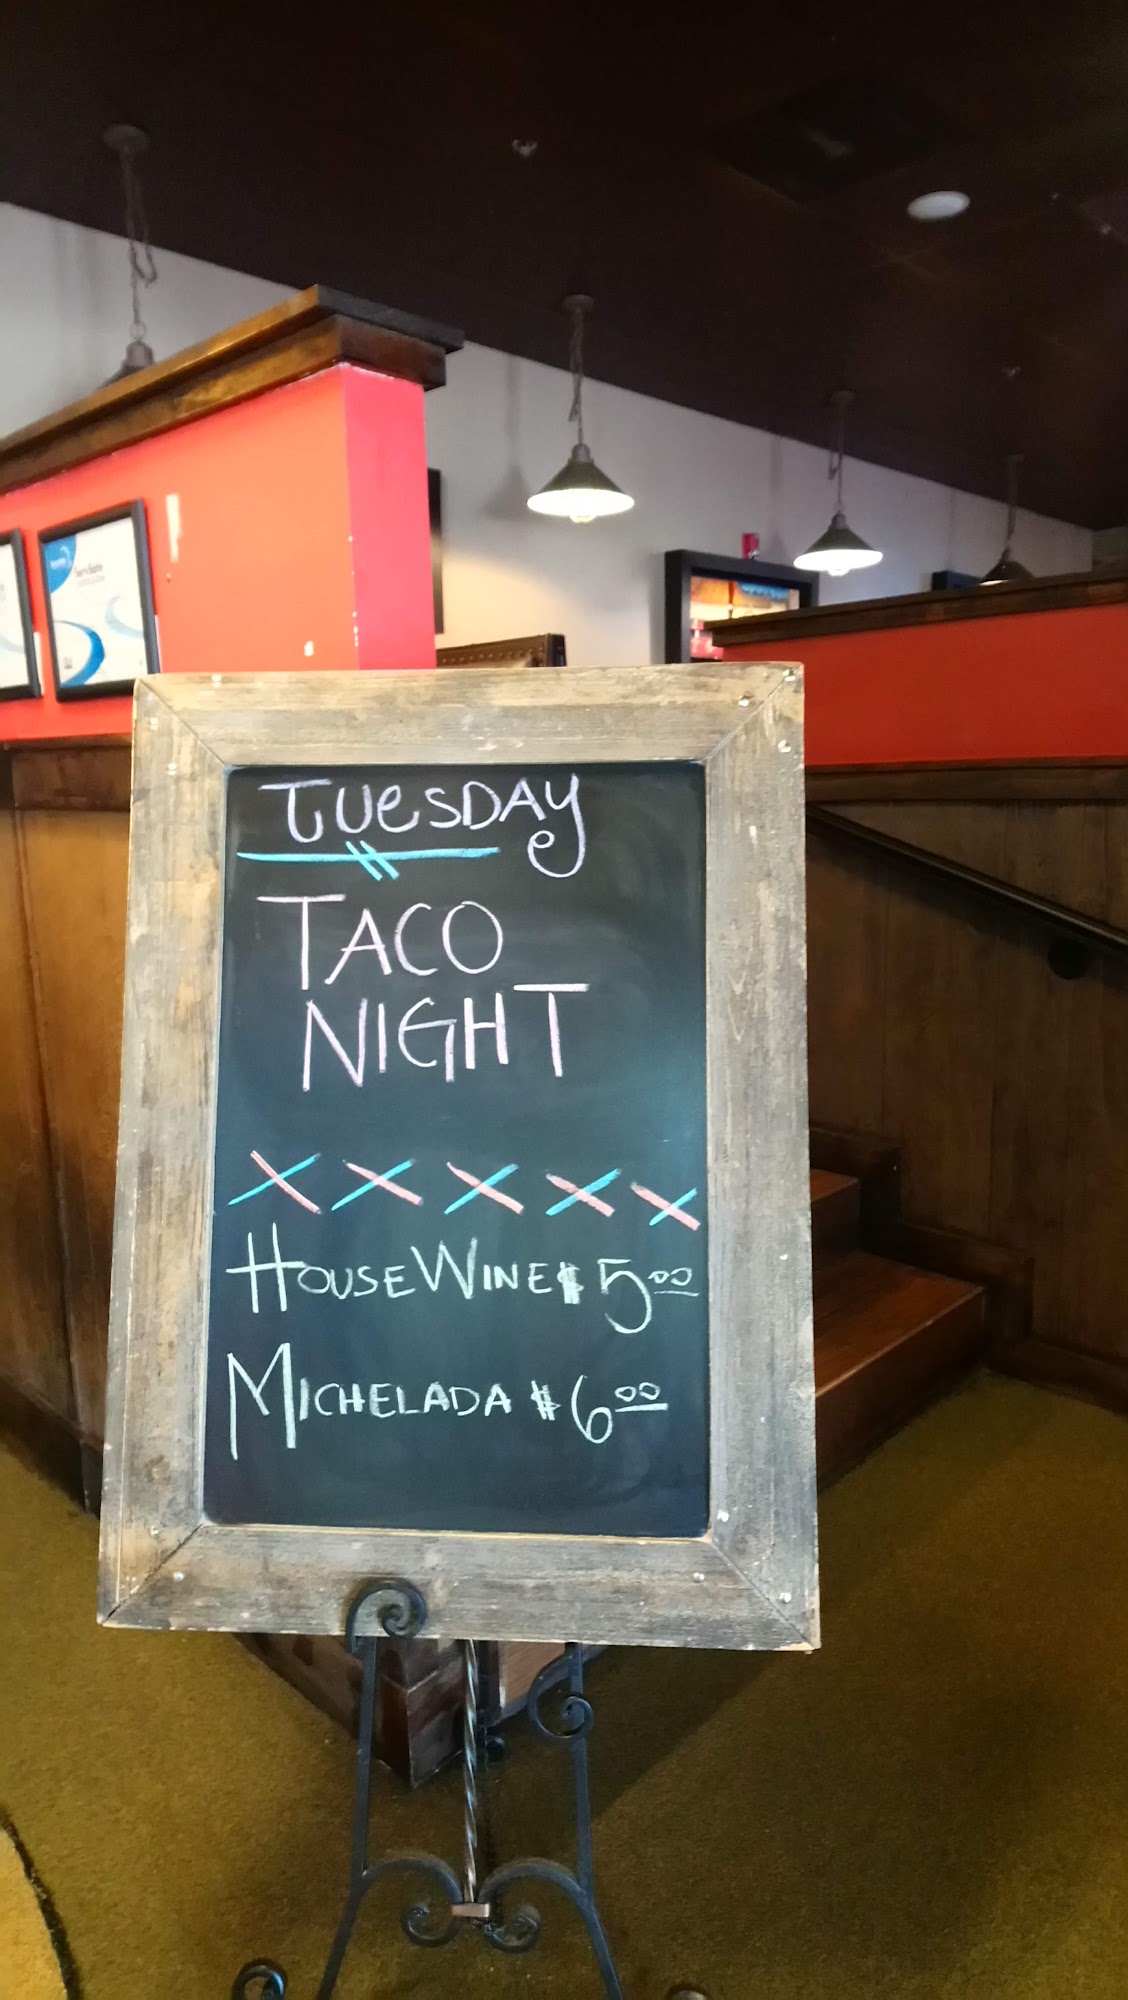 TUeSDAy
TACO
NIGHT
XXXXX
HOUSE WINE $ 5.00
MICHELADA $ 6.00